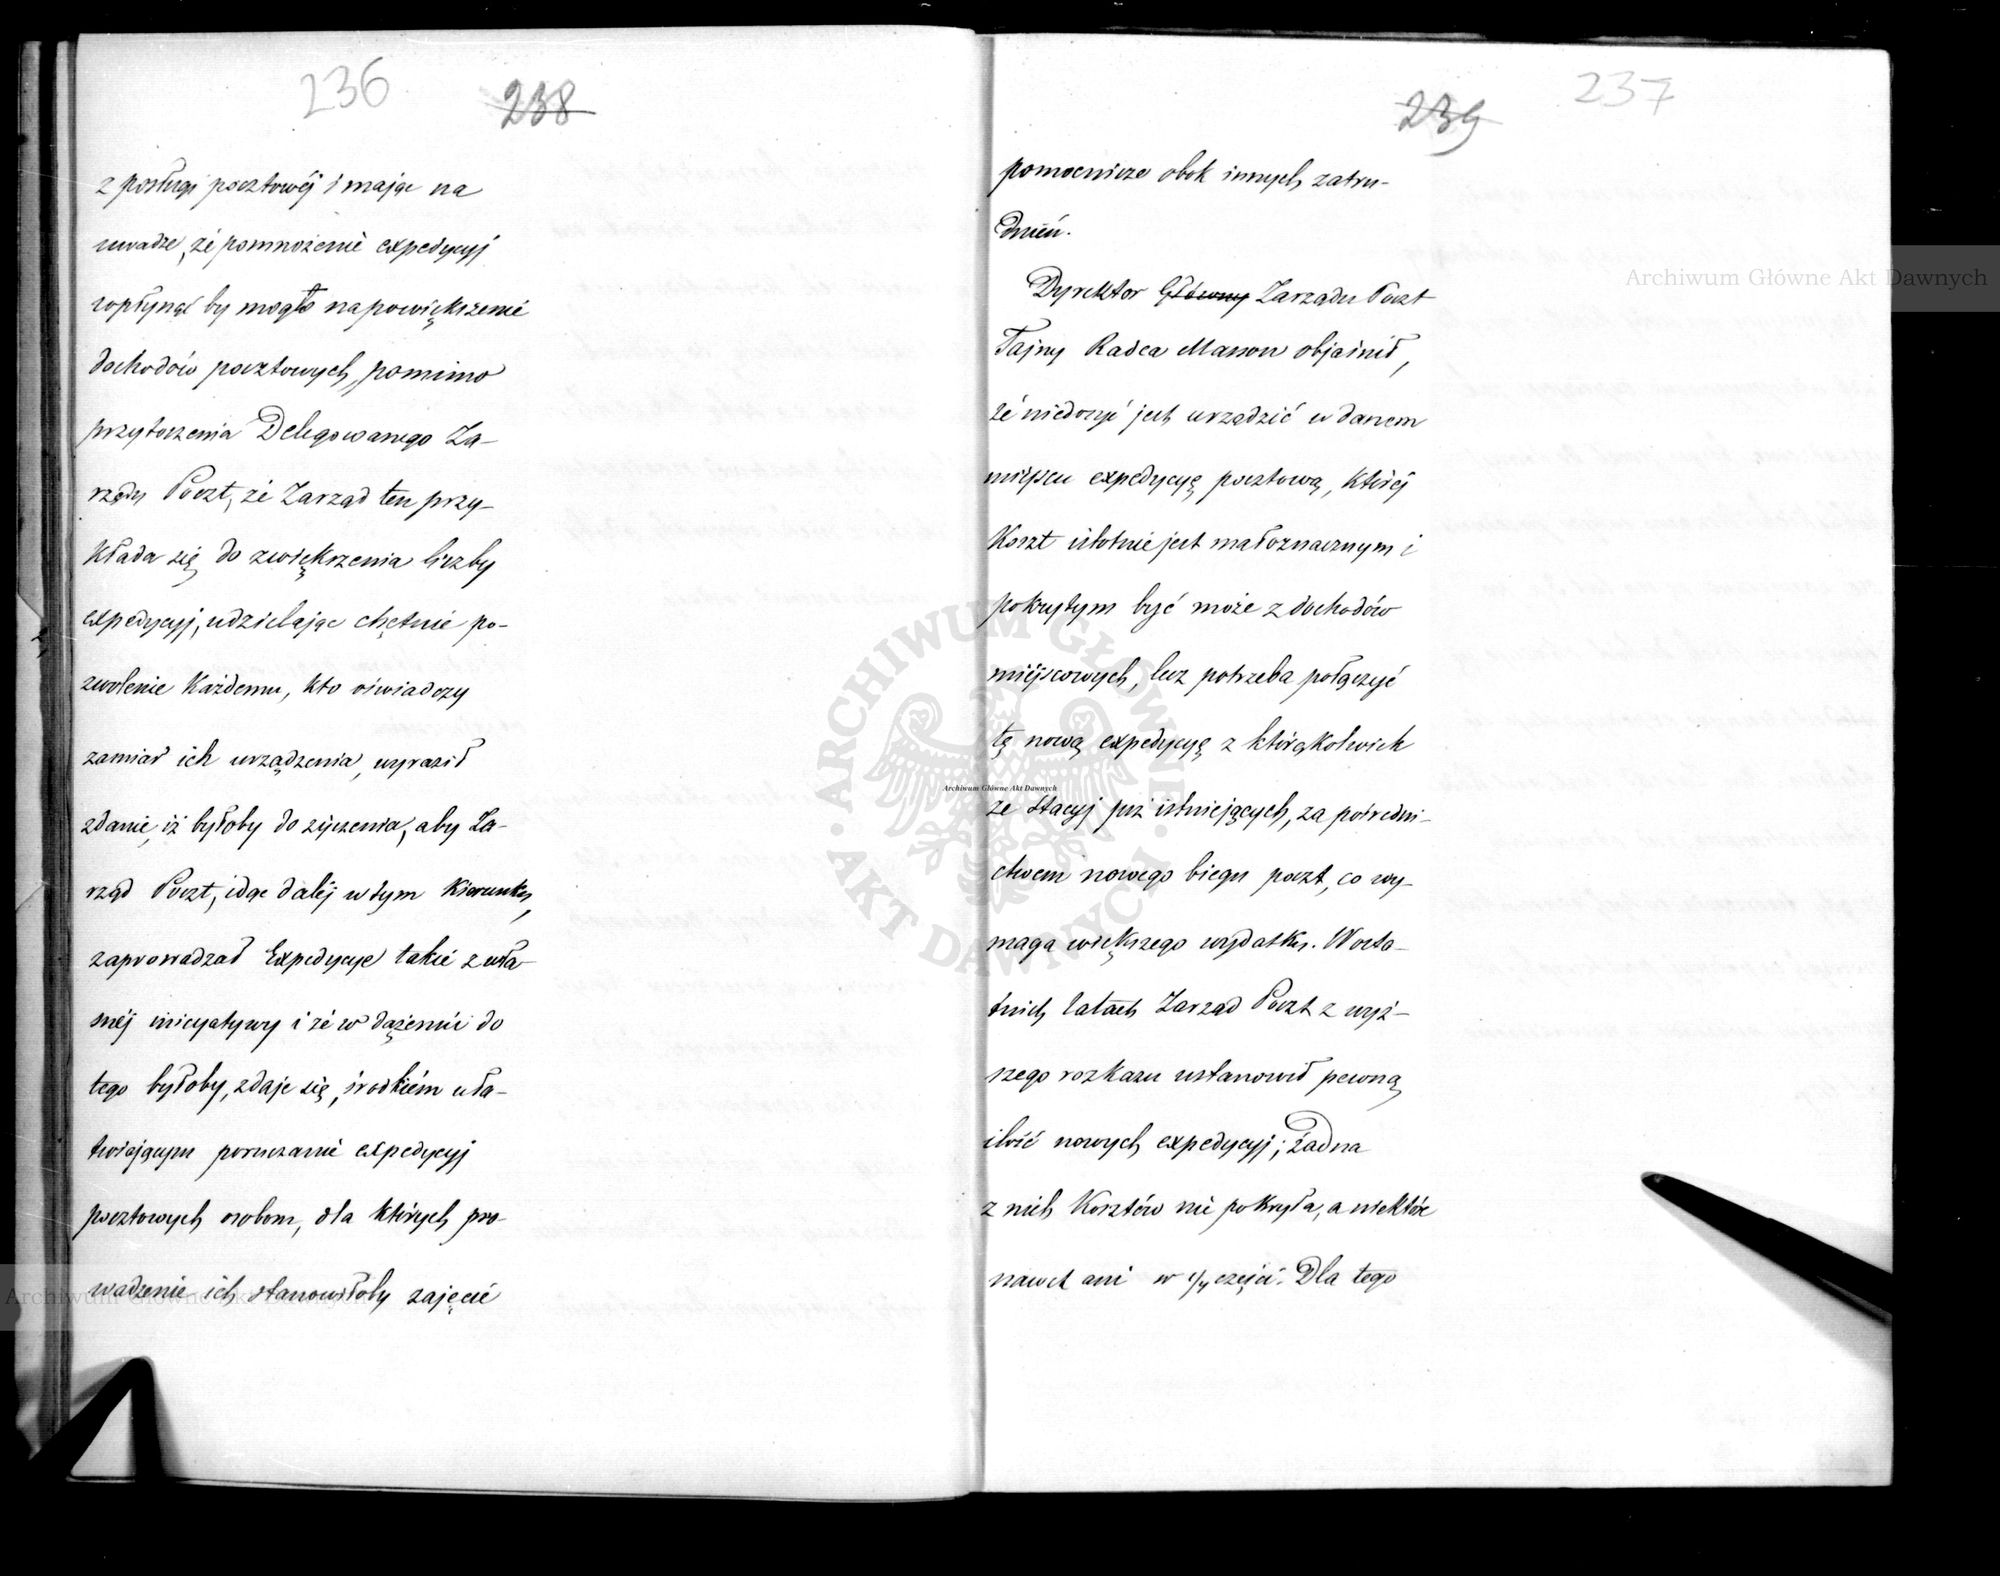 236
238
z posługi pocztowéj i mając na
uwadze, że pomnożenie expedycyj
wpłynąć by mogło na powiększenie
dochodów pocztowych, pomimo
przytoczenia Delegowanego Za-
rządu Poczt, że Zarząd ten przy-
kłada się do zwiększenia liczby
expedycyj, udzielając chętnie po-
zwolenie każdemu, kto oświadczy
zamiar ich urządzenia, wyraził
zdanie, iż byłoby do życzenia, aby Za-
rząd Poczt, idąc daléj w tym kierunku,
zaprowadzał Expedycye takie z wła-
snéj inicyatywy i że w dążeniu do
tego byłoby, zdaje się, środkiém uła-
twiającym poruczanie expedycyj
pocztowych osobom, dla których pro-
wadzenie ich stanowiłoby zajęcie
239
237
pomocnicze obok innych zatru-
dnień.
Dyrektor Główny Zarządu Poczt
Tajny Radca Masson objaśnił,
że niedosyć jest urządzić w danem
miejscu expedycyę pocztową, któréj
koszt istotnie jest małoznacznym i
pokrytym być może z dochodów
miéjscowych, lecz potrzeba połączyć
tę nową expedycyę z którąkolwiek
ze stacyj już istniejących, za pośredni-
ctwem nowego biegu poczt, co wy-
maga większego wydatku. W osta-
tnich latach Zarząd Poczt z wyż-
szego rozkazu ustanowił pewną
ilość nowych expedycyj; żadna
z nich kosztów nie pokryła, a niektóre
nawet ani w 1/4 części. Dla tego
Archiwum Główne Akt Dawnych
ARCHIWUM GŁÓWNE
AKT DAWNYCH
Archiwum Główne Akt Dawnych
Archiwum Główne Akt Dawnych